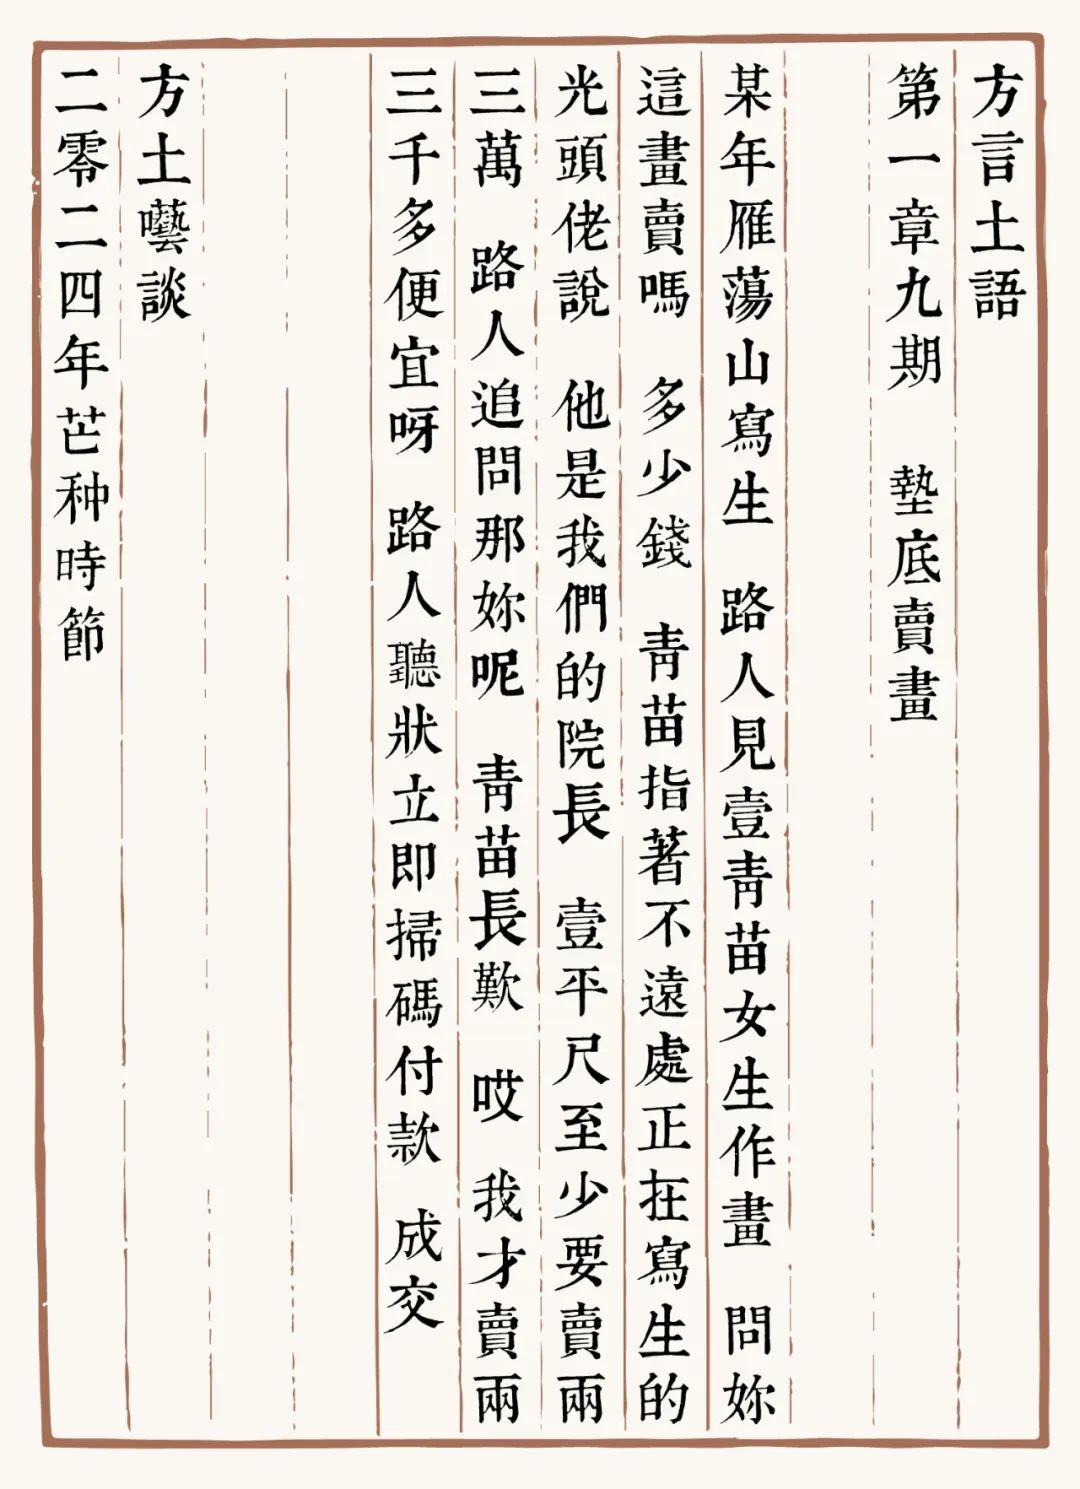 方言土語
第一章九期　墊底賣畫
某年雁蕩山寫生　路人見壹靑苗女生作畫　問妳
這畫賣嗎　多少錢　靑苗指著不遠處正在寫生的
光頭佬說　他是我們的院長　壹平尺至少要賣兩
三萬　路人追問那妳呢　靑苗長歎　哎　我才賣兩
三千多便宜呀　路人聽狀立即掃碼付款　成交
方土囈談
二零二四年芒种時節